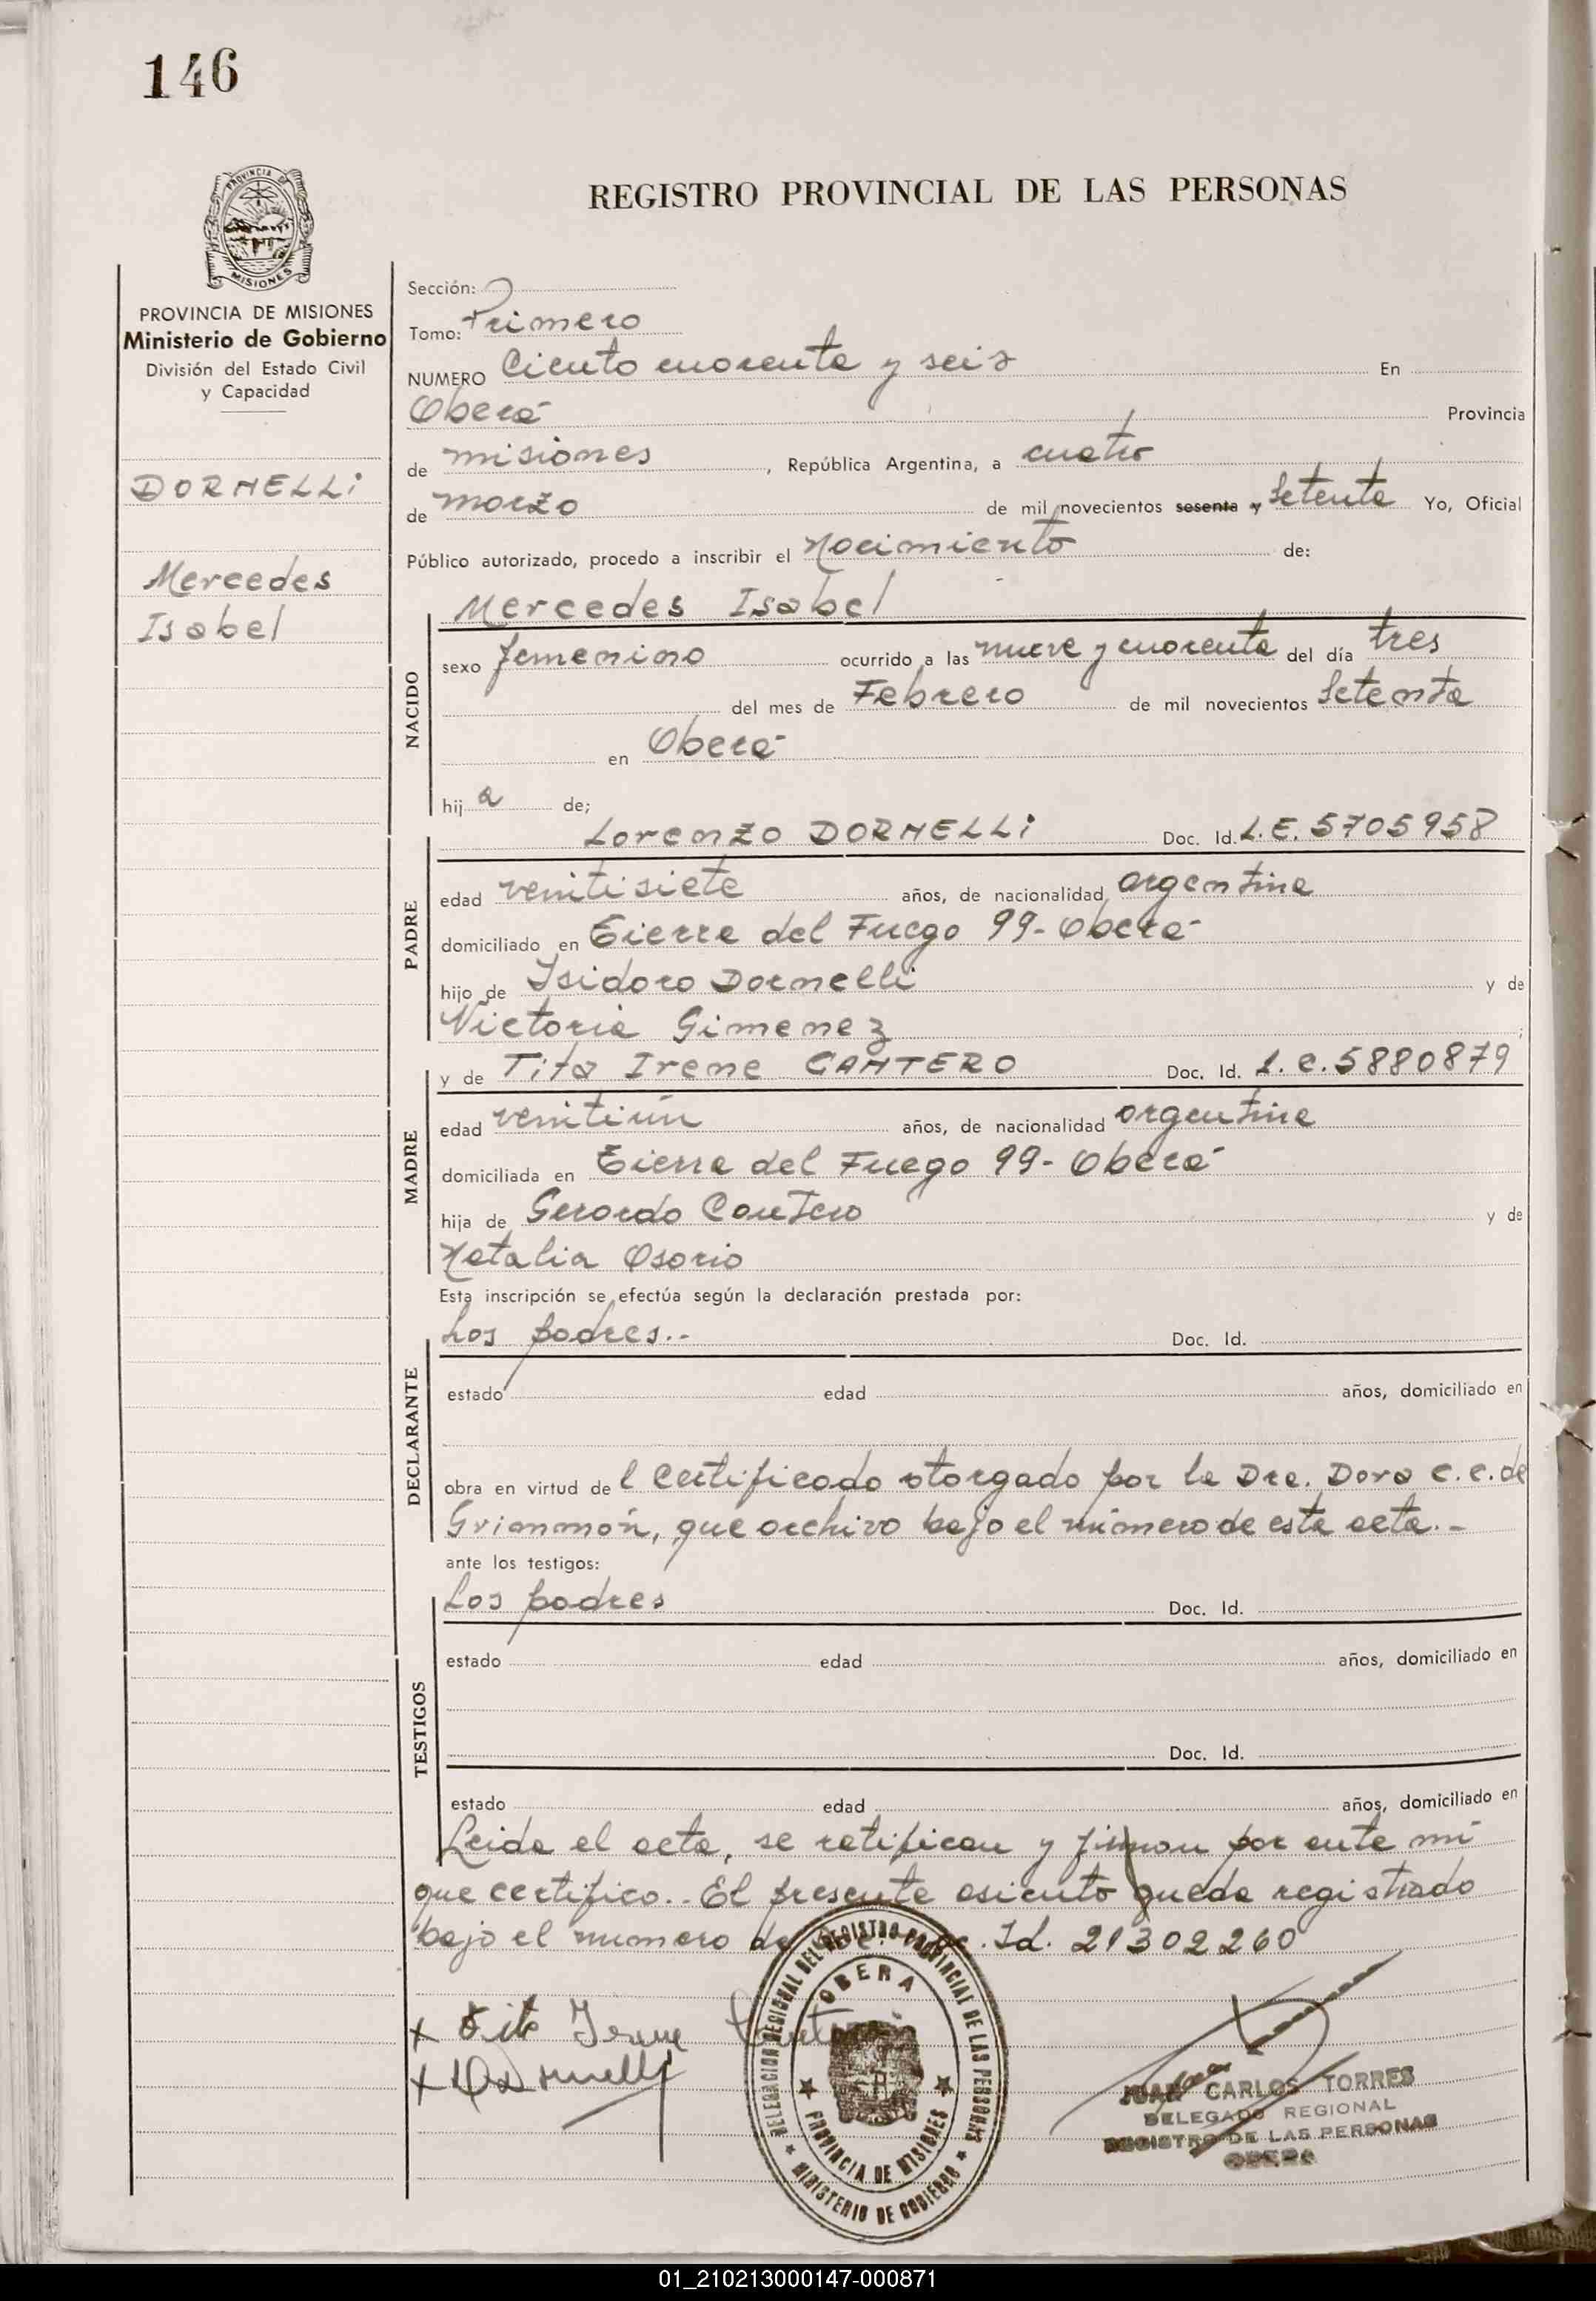 146
PROVINCIA DE
MISIONES
REGISTRO PROVINCIAL DE LAS PERSONAS
PROVINCIA DE MISIONES
Ministerio de Gobierno
División del Estado Civil
y Capacidad
DORNELLI
Mercedes
Isabel
Sección:
Tomo: Primero
NUMERO Ciento cuarenta y seis En
Oberá Provincia
de misiones, República Argentina, a cuatro
de marzo de mil novecientos sesenta y Setenta Yo, Oficial
Público autorizado, procedo a inscribir el Nacimiento de:
Mercedes Isabel
NACIDO
sexo femenino ocurrido a las nueve y cuarenta del día tres
del mes de Febrero de mil novecientos Setenta
en Oberá
hij a de;
Lorenzo DORNELLI Doc. Id. L.E. 5705958
PADRE
edad venitisiete años, de nacionalidad argentina
domiciliado en Tierra del Fuego 99- Oberá
hijo de Isidoro Dornelli y de
Victoria Gimenez
y de Tita Irene CANTERO Doc. Id. L.C. 5880879
MADRE
edad venitiún años, de nacionalidad argentina
domiciliada en Tierra del Fuego 99- Oberá
hija de Gerardo Cantero y de
Natalia Osorio
Esta inscripción se efectúa según la declaración prestada por:
Los padres.- Doc. Id.
DECLARANTE
estado edad años, domiciliado en
obra en virtud de l Certificado otorgado por la Dra. Dora C.C. de
que archivo bajo el número de esta acta.-
ante los testigos:
Los padres Doc. Id.
TESTIGOS
estado edad años, domiciliado en
Doc. Id.
estado edad años, domiciliado en
Leida el acta, se ratifican y firman por ante mí
que certifico.. El presente asiento queda registrado
bajo el numero de Id. 21302260
Tita Irene Cantero
Dornelli
DELEGACION REGIONAL DEL REGISTRO PROVINCIAL DE LAS PERSONAS
OBERA
PROVINCIA DE MISIONES
MINISTERIO DE GOBIERNO
JUAN CARLOS TORRES
DELEGADO REGIONAL
REGISTRO DE LAS PERSONAS
OBERA
01_210213000147-000871